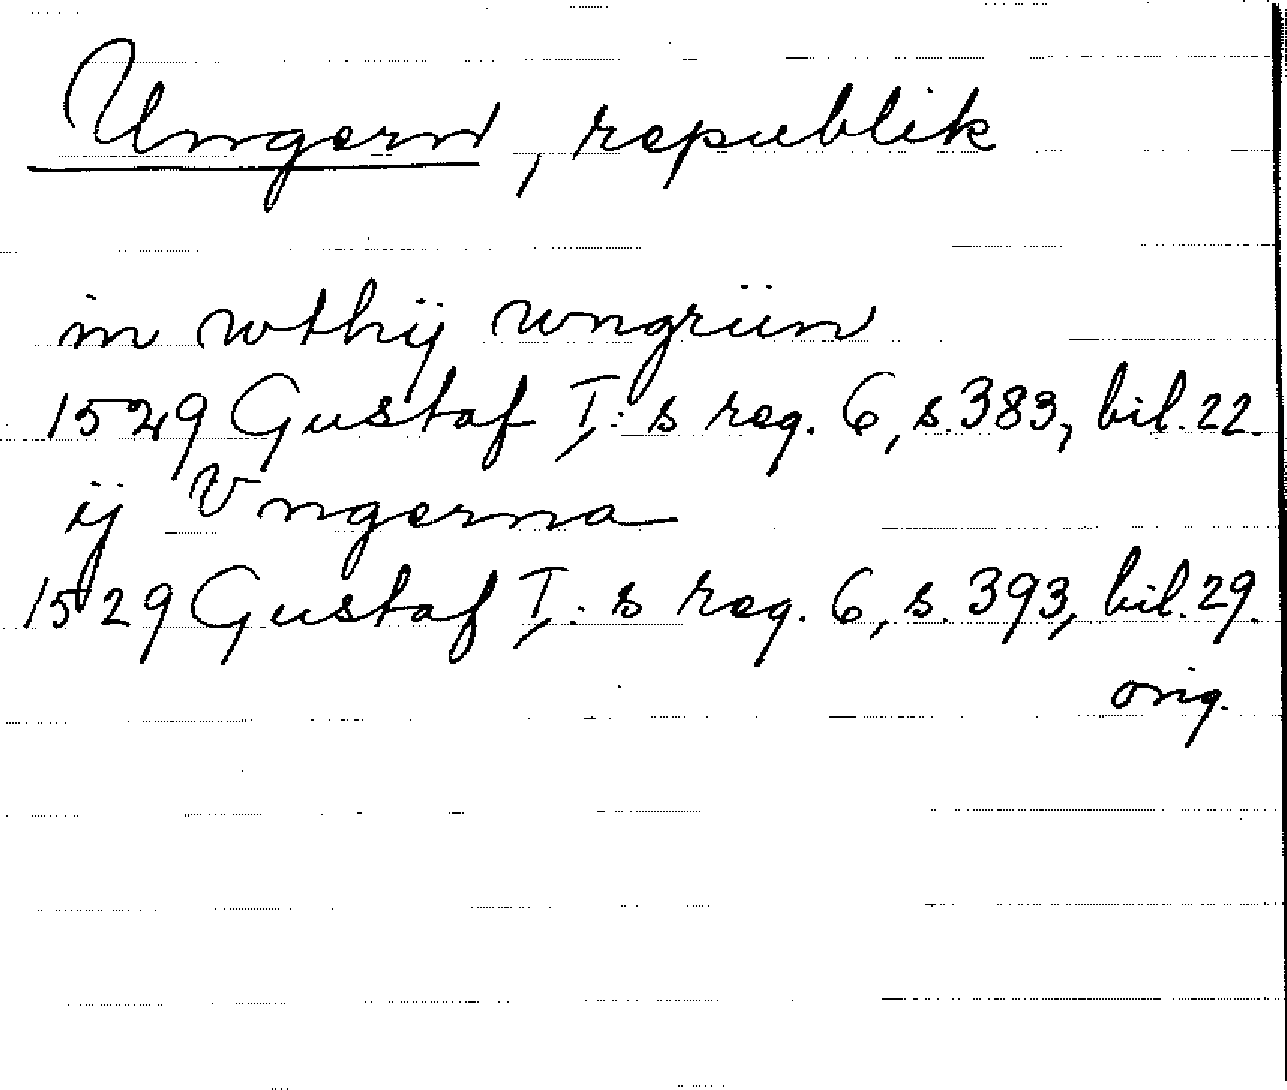 Ungern, republik
in wthij wngriin
1529 Gustaf I:s reg. 6, s.383, bil.22.
ij Vngerna
1529 Gustaf I:s reg. 6, s.393, bil.29.
orig.